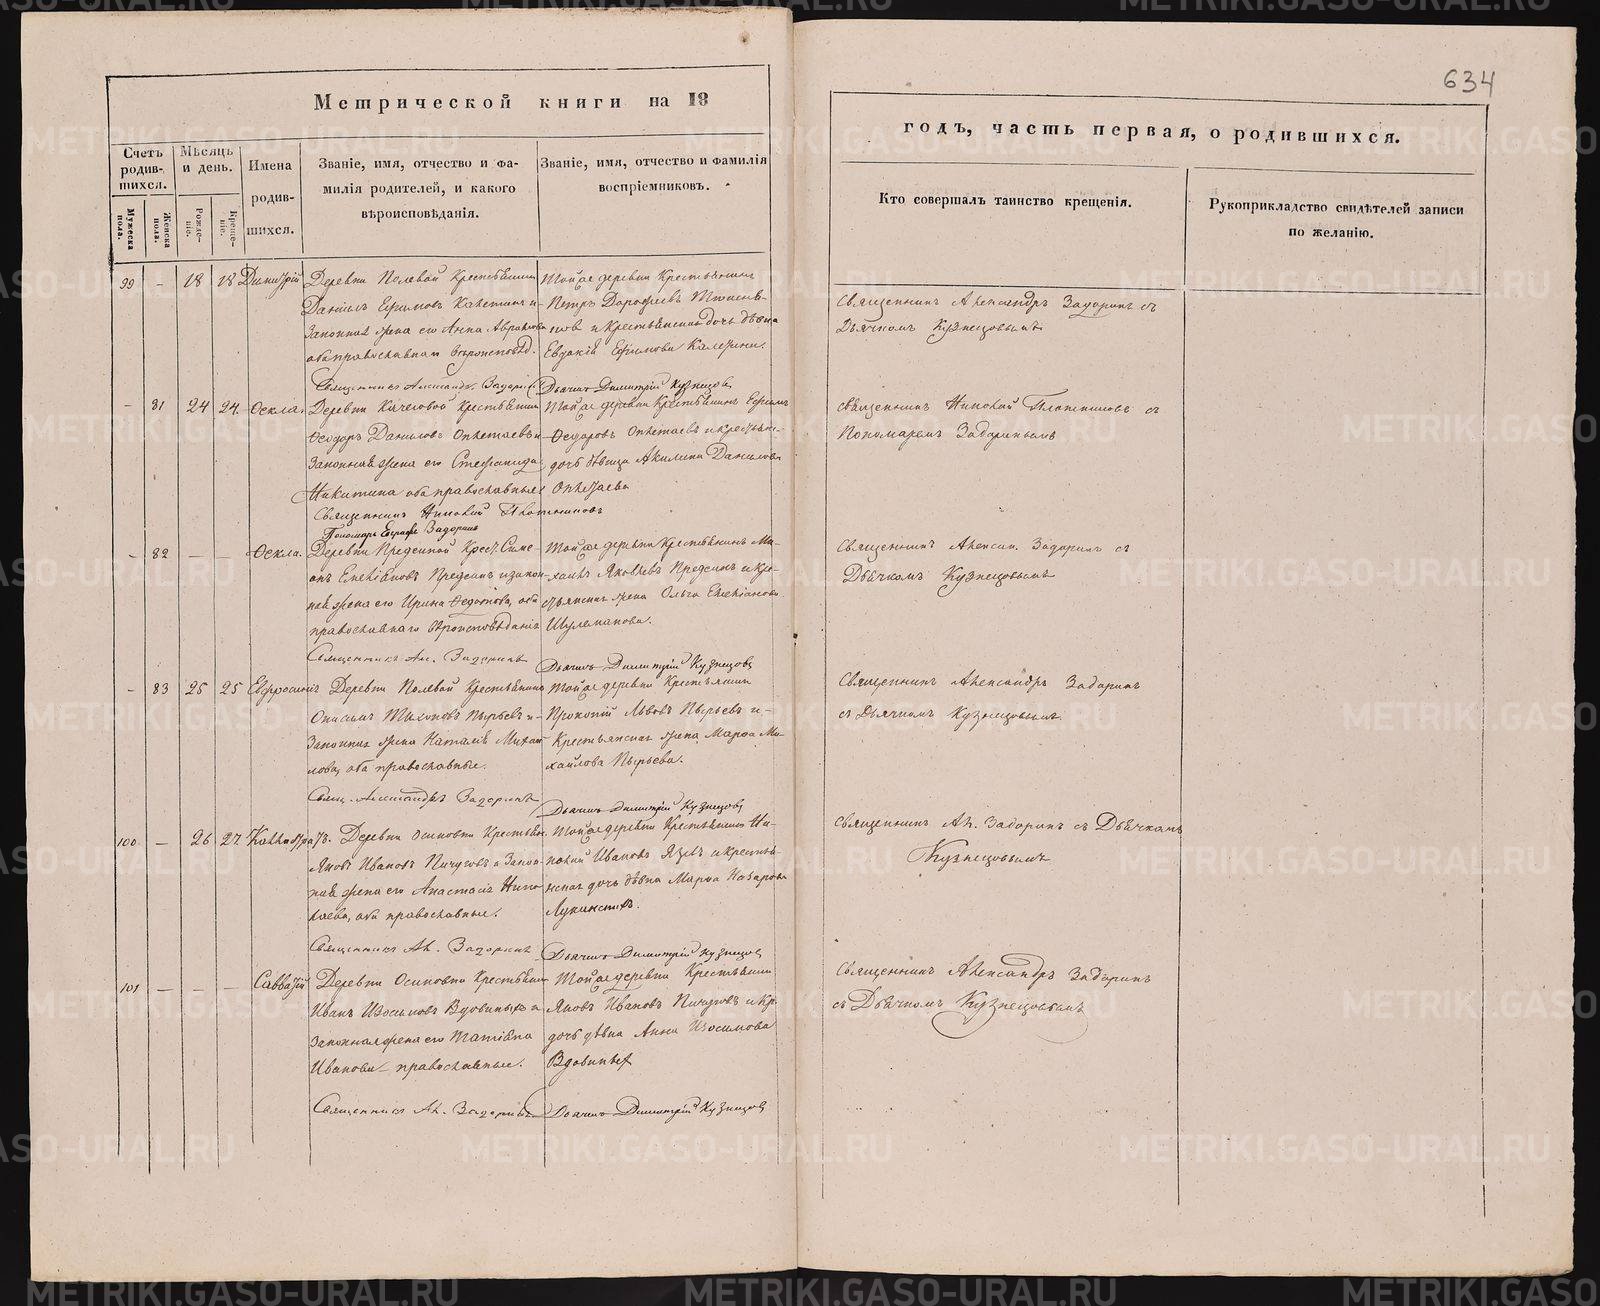 634
Метрической книги на 18
годъ, часть первая, о родившихся.
Счетъ родив-шихся.
Мужеска пола.
Женска пола.
Мѣсяцъ и день.
Рожде-ніе.
Креще-ніе.
Имена
родив-
шихся.
Званіе, имя, отчество и фа-
милія родителей, и какого
вѣроисповѣданія.
Званіе, имя, отчество и фамилія
воспріемниковъ.
Кто совершалъ таинство крещенія.
Рукоприкладство свидѣтелей записи
по желанію.
99 - 18 18 Димитрій
Деревни Полевой Крестьянинъ
Даніилъ Ефимовъ и
Законная жена его Анна
оба православнаго вѣроисповѣд.
Священникъ Александръ Задоринъ
Тойже деревни Крестьянинъ
Петръ Дорофеевъ
и Крестьянская дочь дѣвка
Евдокія Ефимова
Дьячекъ Димитрій Кузнецовъ
Священникъ Александръ Задоринъ съ
Дьячкомъ Кузнецовымъ
- 81 24 24 Ѳекла.
Деревни Крестьянинъ
Ѳеодоръ Даниловъ и
Законная жена его Стефанида
Никитина оба православные
Священникъ Николай Плотниковъ
Пономарь Задоринъ
Тойже деревни Крестьянинъ Ефимъ
Ѳедоровъ и крестьян.
дочь дѣвица Акилина Данилова
Священникъ Николай Плотниковъ съ
Пономаремъ Задоринымъ
- 82 - - Ѳекла.
Деревни Предеиной Крест. Симе-
онъ Предеинъ и закон-
ная жена его Ирина оба
православнаго вѣроисповѣданія
Священникъ Ал. Задоринъ
Тойже деревни Крестьянинъ Ми-
хаилъ Яковлевъ Предеинъ и кре-
стьянская жена Ольга
Дьячекъ Димитрій Кузнецовъ
Священникъ Александ. Задоринъ съ
Дьячкомъ Кузнецовымъ
- 83 25 25 Евфросинія
Деревни Полевой Крестьянинъ
Онисимъ Тихоновъ Пырьевъ и
Законная жена Наталія Михай-
лова, оба православные.
Свящ. Александръ Задоринъ
Тойже деревни Крестьянинъ
Прокопій Львовъ Пырьевъ и
Крестьянская жена Марѳа Ми-
хайлова Пырьева.
Дьячекъ Димитрій Кузнецовъ
Священникъ Александръ Задоринъ
съ Дьячкомъ Кузнецовымъ
100 - 26 27
Деревни Осиновки Крестьян.
Яковъ Ивановъ Пичуговъ и Закон-
ная жена его Анастасія Нико-
лаева, оба православные.
Священникъ Ал. Задоринъ
Тойже деревни Крестьянинъ Ни-
колай Ивановъ и крестья-
нская дочь дѣвка Марѳа Назарова
Дьячекъ Димитрій Кузнецовъ
Священникъ Ал. Задоринъ съ Дьячкомъ
Кузнецовымъ
101 - - - Савватій
Деревни Осиновки Крестьянинъ
Иванъ Изосимовъ Вдовиныхъ и
Законная жена его Татіана
Иванова православные.
Священникъ Ал. Задоринъ
Тойже деревни Крестьянинъ
Яковъ Ивановъ Пичуговъ и Кр.
дочь дѣвка Анна Изосимова
Вдовиныхъ
Дьячекъ Димитрій Кузнецовъ
Священникъ Александръ Задоринъ
съ Дьячкомъ Кузнецовымъ
METRIKI.GASO-URAL.RU